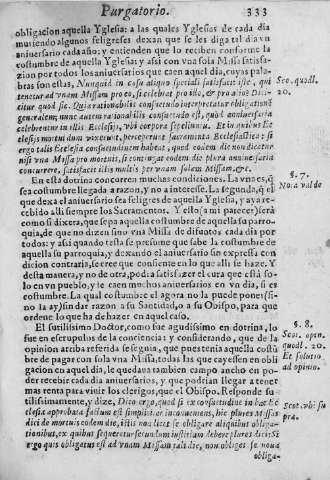 Purgatorio. 333
obligacion aquella Yglesia: a las quales Yglesias de cada dia
muriendo algunos feligreses dexan que se les diga tal dia vn
aniversario cada año: y entienden que lo reciben conforme la
costumbre de aquella Yglesia: y assi con vna sola Missa satisfa-
zion por todos los aniuersarios que caen aquel dia, cuyas pala-
bras son estas, Nunquid in casu aliquo speciali satisfacit iste, qui
tenetur ad vnam Missam pro eo, si celebrat pro isto, & pro alio?
Sco. quodl.
20.
citur quod sic. Quia rationabilis consuetudo interpretatur obligationē
generalem; nunc autem rationabilis consuetudo est, quod anniuersaria
celebrentur in illis Ecclesijs, vbi corpora sepeliuntur.
ergo talis Ecclesia consuetudinem habeat, quod eodem die non dicatur
nisi vna Missa pro mortuis, si contingat eodem die plura anniuersaria
concurrere, satisfacit illis multis per vnam solam Missam, &c.
En esta dotrina concurren muchas condiciones. La vna es, q̃
§. 7.
Nota valde
sea costumbre llegada a razon, y no a interesse. La segunda, q̃ el
que dexa el aniuersario sea feligres de aquella Yglesia, y aya re-
cebido alli siempre los Sacramentos. Y esto (a mi parecer) será
como si dixera, que sepa aquella costumbre de aquella su parro-
quia, de que no dizen sino vna Missa de difuntos cada dia por
todos: y assi quando testa se presume que sabe la costumbre de
aquella su parroquia, y dexando el aniuersario sin expressa con
dicion contraria, se cree que consiente en lo que alli se haze. Y
desta manera, y no de otra, podia satisfazer el cura que està so-
lo en vn pueblo, y le caen muchos aniuersarios en vn dia, si es
costumbre. La qual costumbre el agora no la puede poner (si-
no la ay) sin dar razon a su Santidad, o a su Obispo, para que
ordene lo que ha de hazer en aquel caso.
El sutilissimo Doctor, como fue agudissimo en dotrina, lo
§. 8.
fue en escrupulos de la conciencia y considerando, que de la
Scot. open.
quodl. 20.
Et solutio
ad opinio.
opinion arriba referida se seguia, que puesta en ia aquella costū
bre de pagar con sola vna Missa, todas las que cayessen en obli
gacion en aquel dia, le quedaua tambien campo ancho en po-
der recebir cada dia aniuersarios, y que podrian llegar a tener
mas renta para viuir los clerigos, que el Obispo. Responde su-
tilissimamente, y dize, Dico ergo, quod si ex consuetudine in hac Ec
Scot. vbi su
pra.
clesia approbata factum est simpliciter inconueniens, hic plures Missas
dici de mortuis eodem die,
tionibus, ex quibus sequeretur secundum iustitiam debere plures dici: Si
ergo quis obligatus est ad vnam Missam tali die, non obliget se noua
obliga-